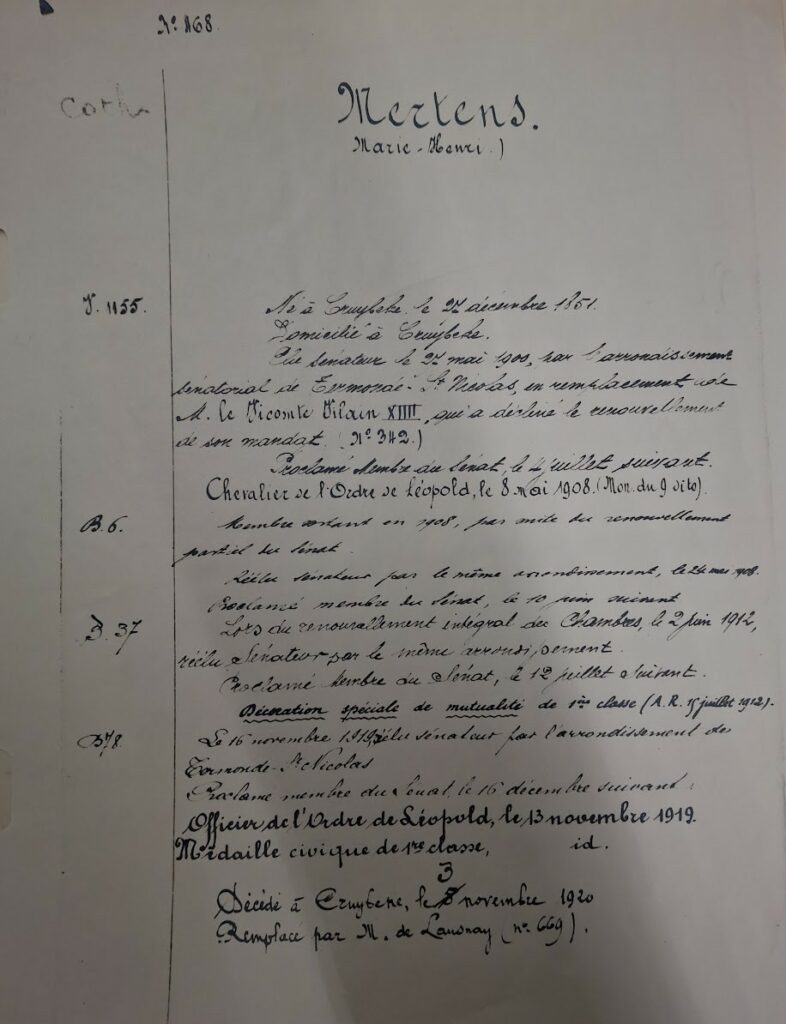 N° 468.
Cath.
Mertens.
Marie-Henri.)
V. 1155.
Né à Cruybeke, le 27 décembre 1851.
Domicilié à Cruybeke.
Elu sénateur le 27 mai 1900, par l'arrondissement
sénatorial de Termonde-St Nicolas, en remplacement de
M. le Vicomte Vilain XIIII, qui a décliné le renouvellement
de son mandat. (N° 342.)
Proclamé Membre du Sénat, le 4 juillet suivant.
Chevalier de l'Ordre de Léopold, le 8 mai 1908. (Mon. du 9 dito).
B. 6.
Membre sortant en 1908, par suite du renouvellement
partiel du Sénat.
Réélu sénateur par le même arrondissement, le 24 mai 1908.
Proclamé membre du Sénat, le 10 juin suivant
B. 37
Lors du renouvellement intégral des Chambres, le 2 juin 1912,
réélu Sénateur par le même arrondissement.
Proclamé Membre du Sénat, le 12 juillet suivant.
Décoration spéciale de mutualité de 1re classe (A. R. 15 juillet 1912).
B 78.
Le 16 novembre 1919, réélu sénateur par l'arrondissement de
Termonde-St Nicolas
Proclamé membre du Sénat, le 16 décembre suivant.
Officier de l'Ordre de Léopold, le 13 novembre 1919.
Médaille civique de 1re classe, id.
3
Décédé à Cruybeke, le novembre 1920
Remplacé par M. de Launay (n° 669).